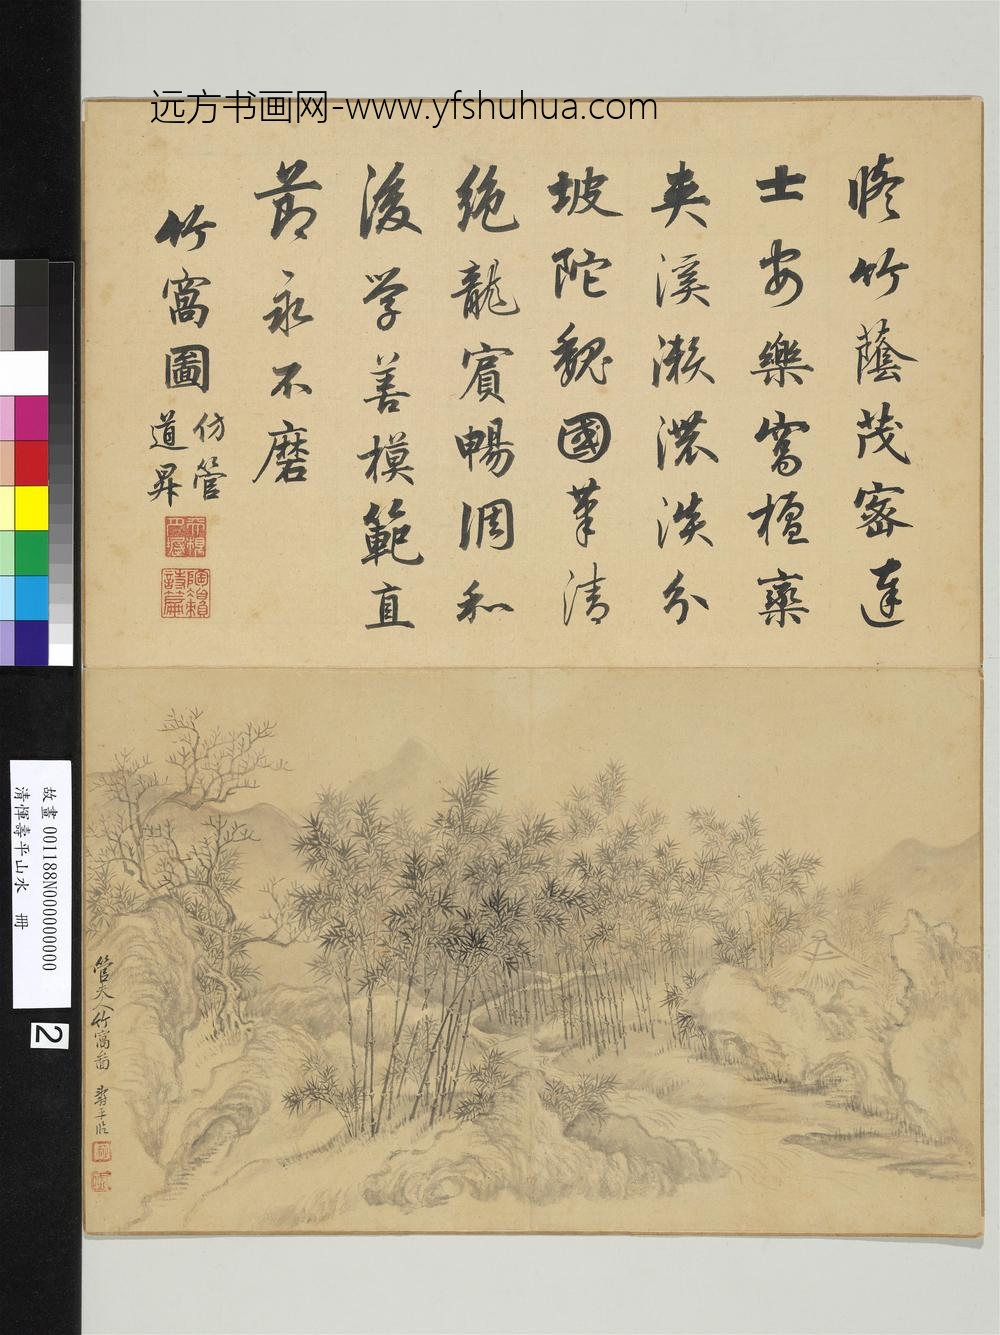 远方书画网-www.yfshuhua.com
脩竹蔭茂密達
士安樂窩檀欒
夾溪瀨濃淡分
坡陀魏國筆清
絶龍賓暢調和
後学善模範直
節永不磨
竹窩圖
仿管
道昇
陶賴
詩篇
管夫人竹窩圖 壽平臨
故畫 001188N000000000
清惲壽平山水 冊
2